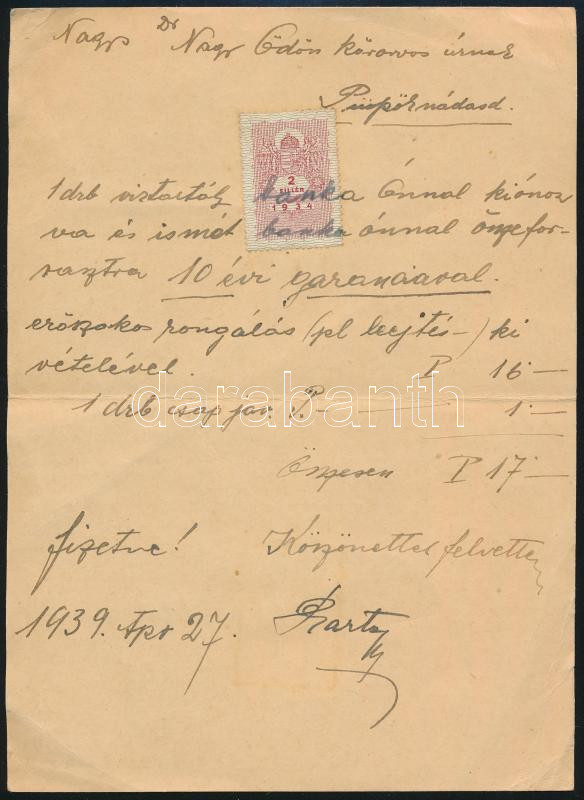 Nagys Dr Nagy Ödön körorvos úrnak
Püspöknádasd.
2
FILLÉR
1934
1 drb víztartály banka ónnal kiónoz
va és ismét banka ónnal öszefor-
rasztva 10 évi garanciával.
erőszakos rongálás (pl leejtés-) ki
vételével. P 16 —
1 drb csap jav. P. — 1 —
darabanth
Öszesen P 17 —
fizetve! Köszönettel felvettem
1939. Apr 27. Barta